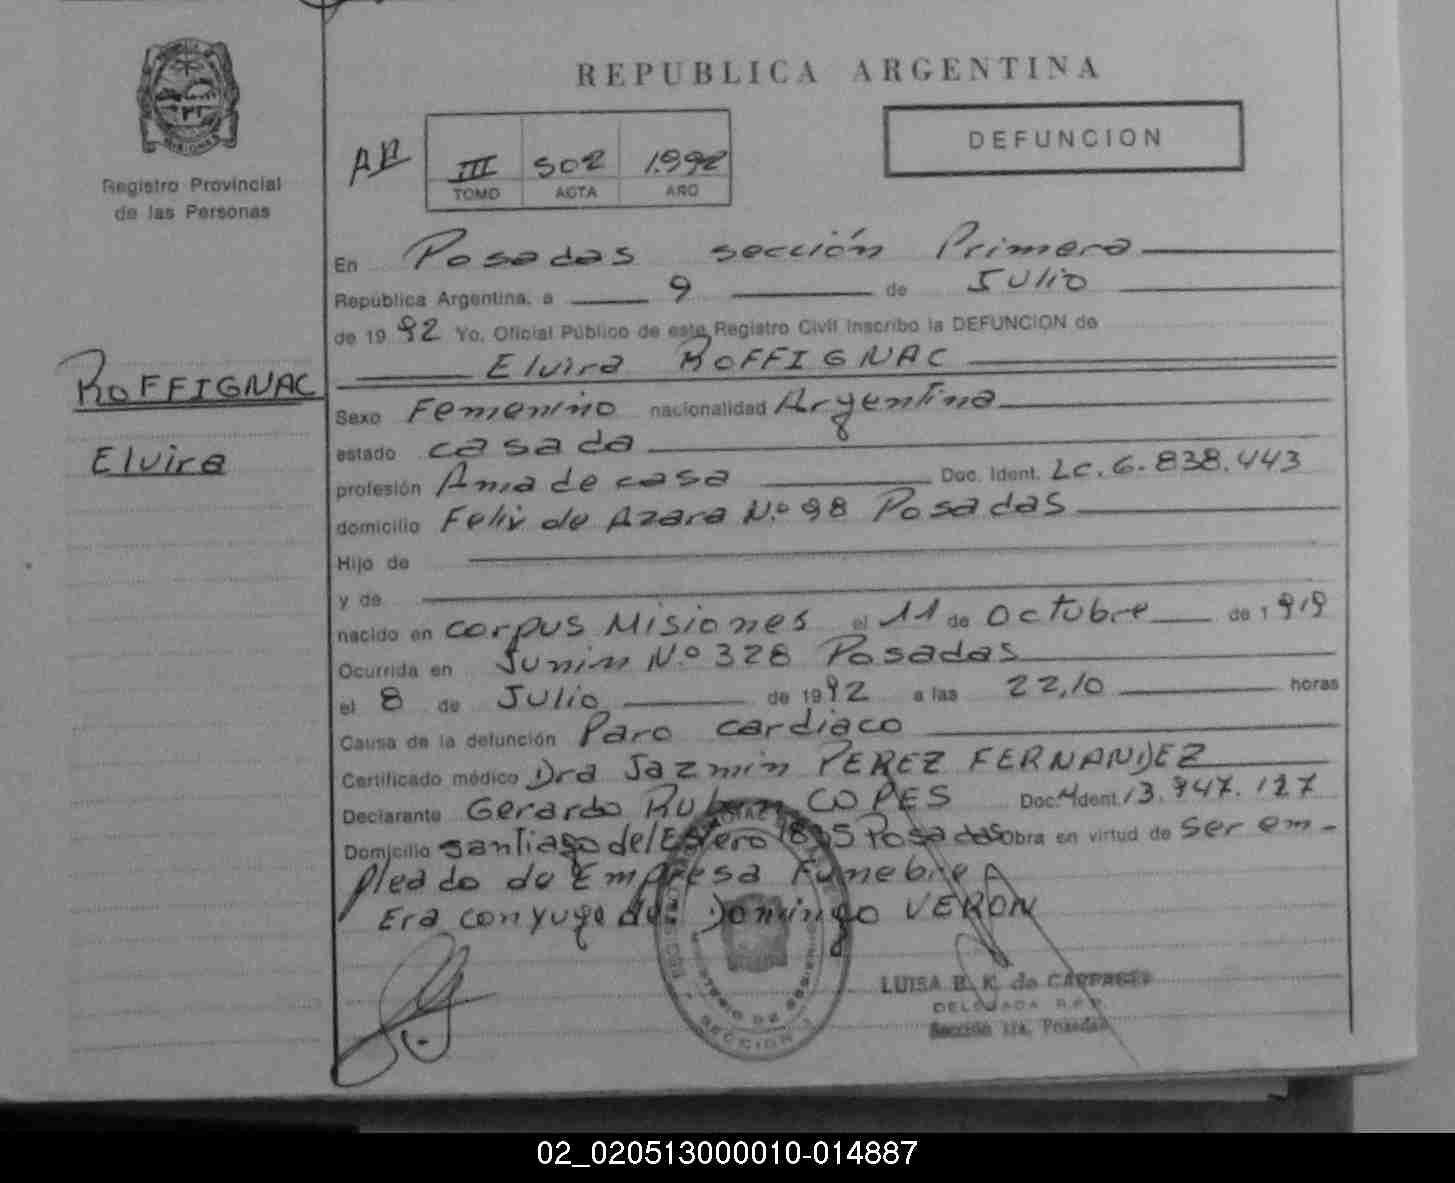 REPUBLICA ARGENTINA
MISIONES
Registro Provincial
de las Personas
III 502 1.992
TOMO ACTA AÑO
DEFUNCION
En Posadas sección Primera
República Argentina, a 9 de Julio
de 1992 Yo, Oficial Público de este Registro Civil inscribo la DEFUNCION de
Elvira ROFFIGNAC
ROFFIGNAC
Elvira
Sexo Femenino nacionalidad Argentina
estado casada
profesión Ama de casa Doc. Ident. Lc. 6.838.443
domicilio Felix de Azara N.º 98 Posadas
Hijo de
y de
nacido en corpus Misiones el 11 de Octubre de 1919
Ocurrida en Junin N.º 328 Posadas
el 8 de Julio de 1992 a las 22,10 horas
Causa de la defunción Paro cardiaco
Certificado médico Dra Jazmin PEREZ FERNANDEZ
Declarante Gerardo Ruben COPES Doc. Ident. 13.947.127
Domicilio santiago del Estero 1835 Posadas Obra en virtud de ser em-
pleado de Empresa Funebre
Era conyuge de: Domingo VERON
LUISA B. K. de
DELEGADA R.P.P.
Sección 1ra. Posadas
SECCION 1
02_020513000010-014887